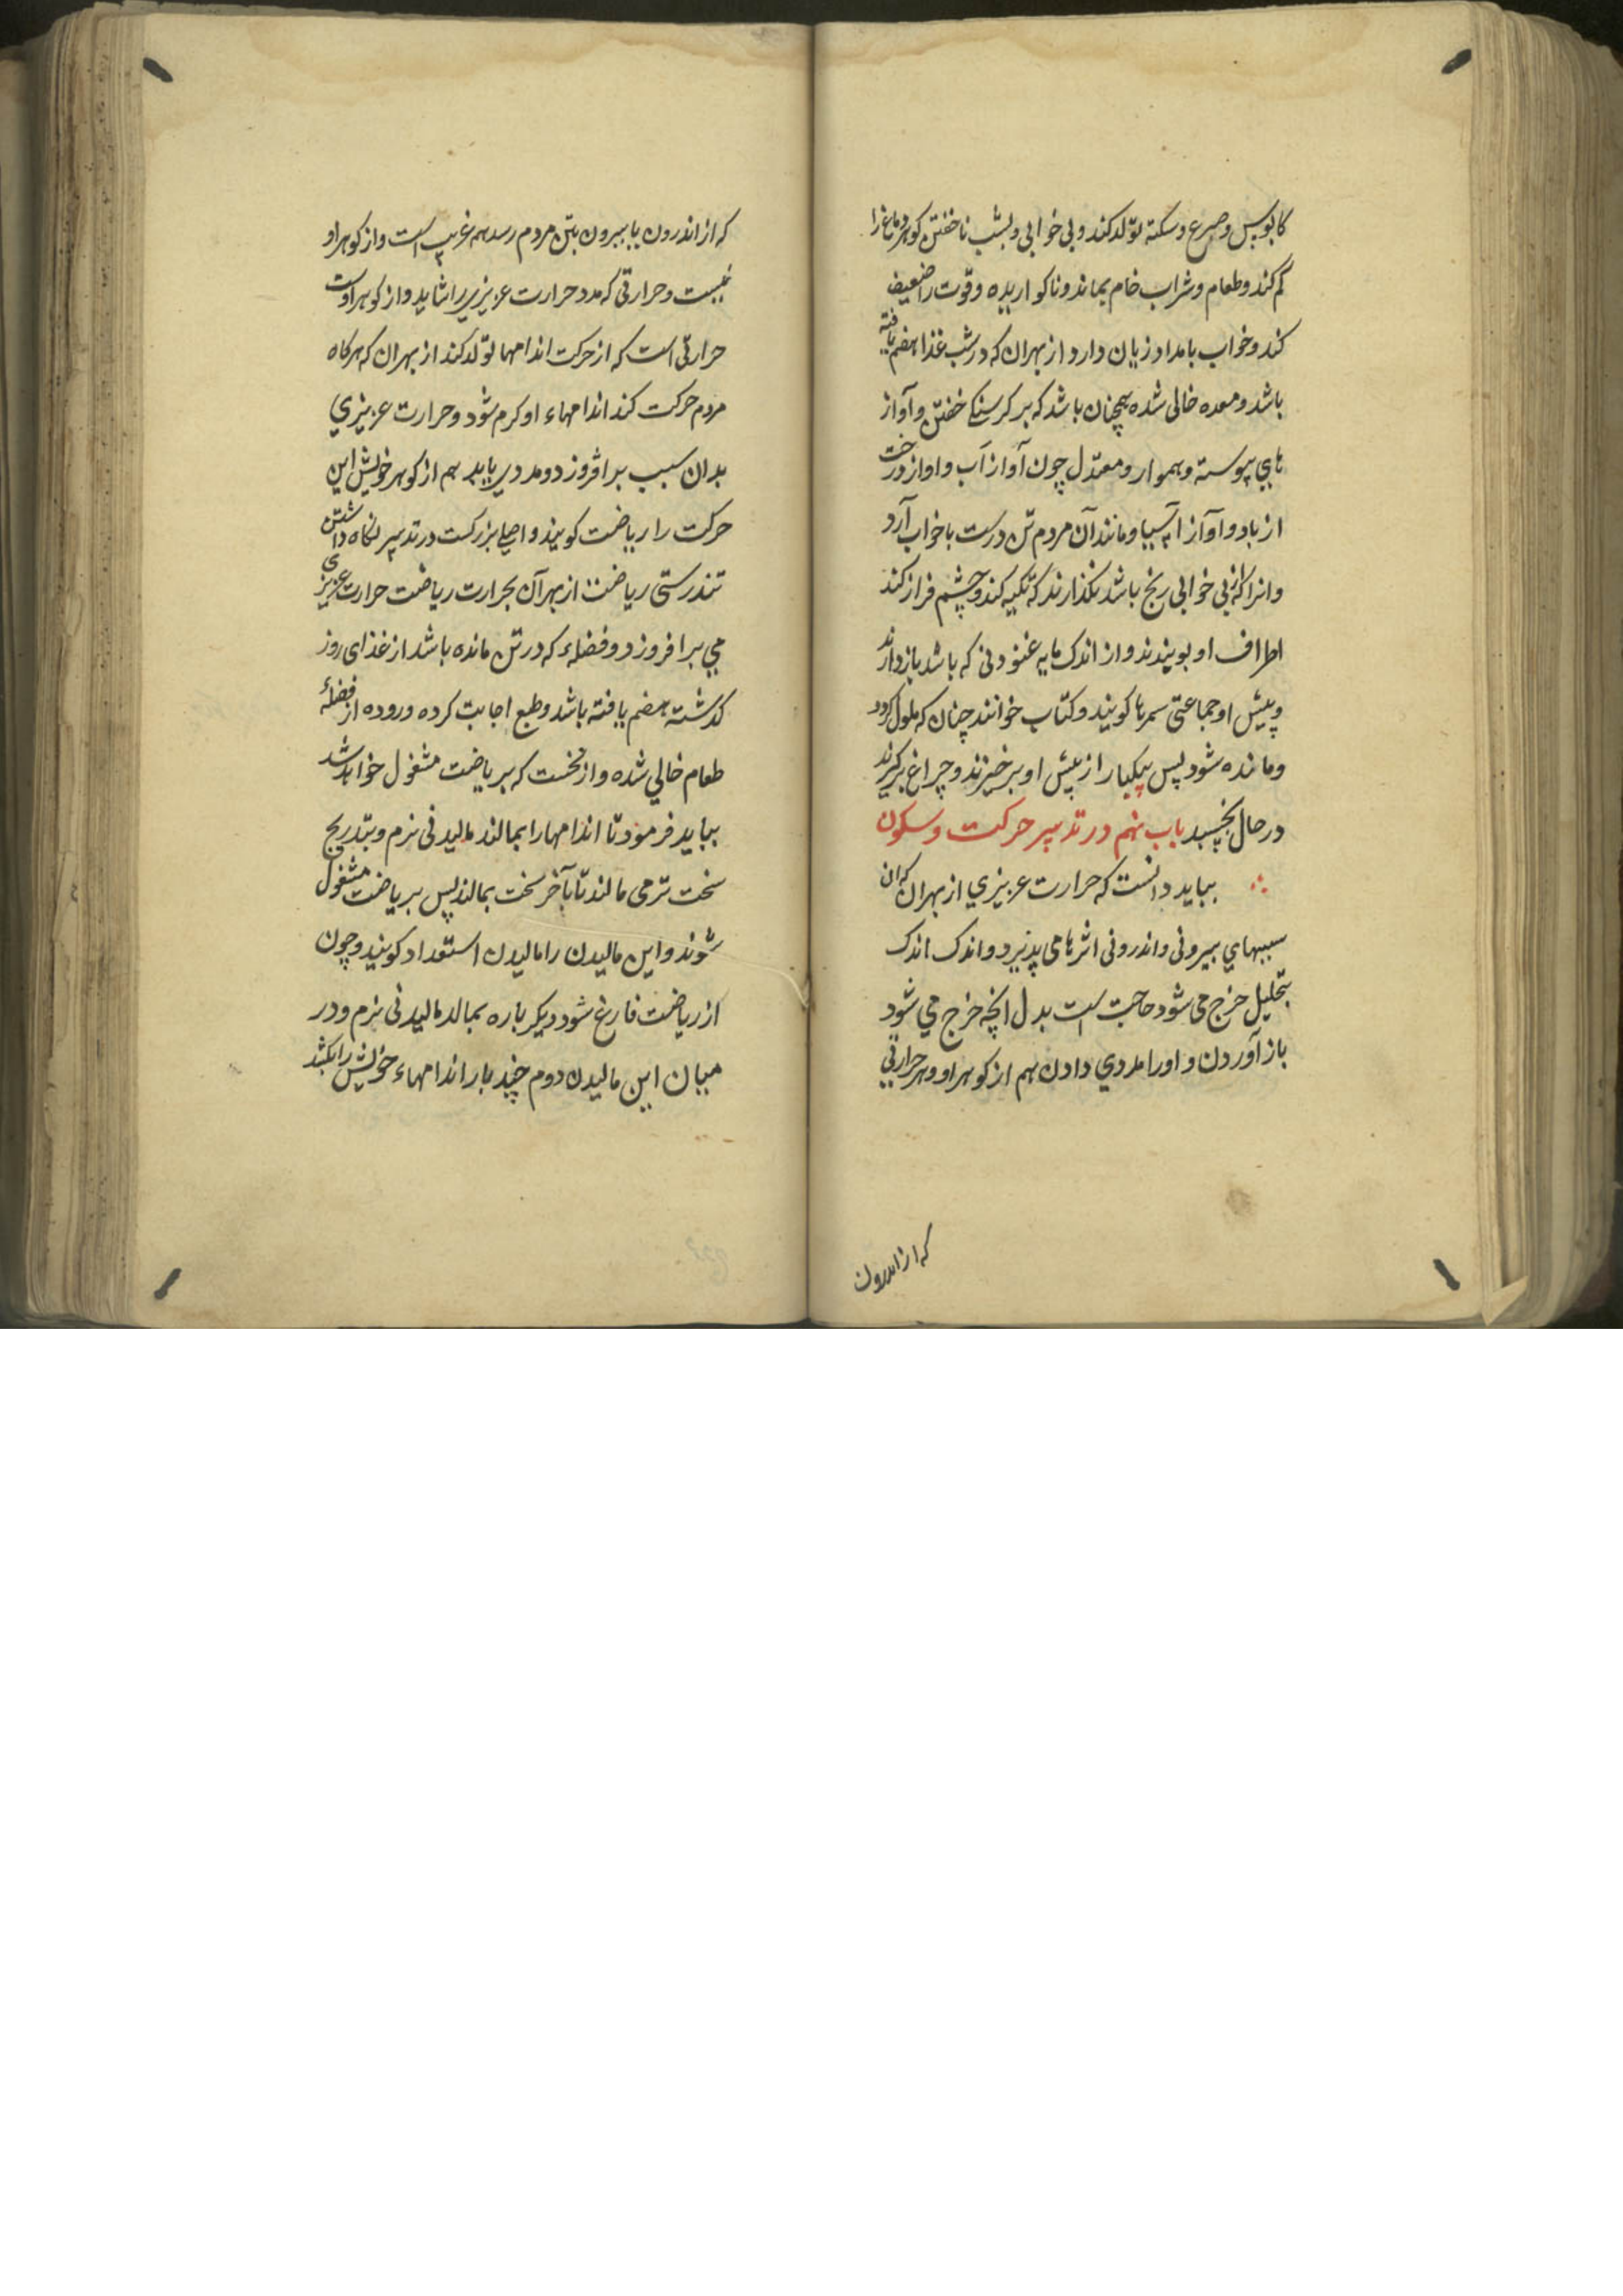 کابوس و صرع و سکته تولد کند و بی خوابی و بشب ناخفتن کوهر دماغ را
کم کند و طعام و شراب خام بماند و ناکواریده و قوت را ضعیف
کند و خواب بامداد زیان دارد از بهر ان که در شب غذا هضم یافته
باشد و معده خالی شده همچنان باشد که بر کرسنکی خفتن و آواز
هاي پیوسته و هموار و معتدل چون آواز آب و اواز درخت
از باد و آواز آسیا و مانند آن مردم تن درست با خواب آرد
و انرا که از بی خوابی رنج باشد نکذارند که تکیه کند و چشم فراز کند
اطراف او بوبندند و از اندک مایه غنودنی که باشد بازدارند
و پیش او جماعتی سمرها کویند و کتاب خوانند چنان که ملول کردد
و مانده شود پس بیکبار از پیش او برخیزند و چراغ برکیرند
در حال بخسبد باب نهم در تدبیر حرکت و سکون
بباید دانست که حرارت عزیزي از بهر ان که ان
سببهاي بیرونی و اندرونی اثرها می پذیرد و اندک اندک
بتحلیل خرج می شود حاجت است بدل انچه خرج مي شود
باز آوردن و اورا مددي دادن هم از کوهر او و هر حرارتی
که از اندرون
که از اندرون یا بیرون بتن مردم رسد همه غریب است و از کوهر او
نیست و حرارتی که مدد حرارت عزیزي را شاید و از کوهر اوست
حرارتی است که از حرکت اندامها تولد کند از بهر ان که هرکاه
مردم حرکت کند اندامهاء او کرم شود و حرارت عزیزي
بدان سبب برافروزد و مددي یابد هم از کوهر خویش این
حرکت را ریاضت کویند و اصلی بزرکست در تدبیر نکاه داشتن
تندرستی ریاضت از بهر آن بحرارت ریاضت حرارت عزیزي
مي برافروزد و فضلهء که در تن مانده باشد از غذای روز
کذشته هضم یافته باشد و طبع اجابت کرده و روده از فضلهٔ
طعام خالي شده و از نخست که بریاضت مشغول خواهد شد
بباید فرمود تا اندامها را بمالند مالیدنی نرم و بتدریج
سخت تر می مالند تا بآخر سخت بمالند پس بریاضت مشغول
شوند و این مالیدن را مالیدن استعداد کویند و چون
از ریاضت فارغ شود دیکر باره بمالد مالیدنی نرم و در
میان این مالیدن دوم چند بار اندامهاء خویش را بکشد